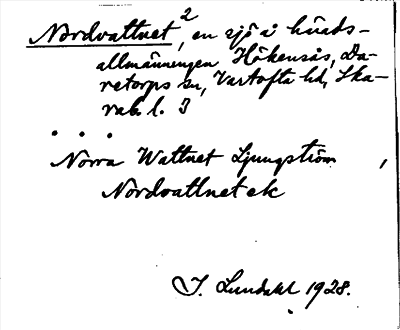 Nordvattnet 2, en sjö i härads-
allmänningen Hökensås, Da-
retorps sn, Vartofta hd, Ska-
rab. l. 3
. . .
Norra Wattnet Ljungström,
Nordvattnet ek
J. Lundahl 1928.